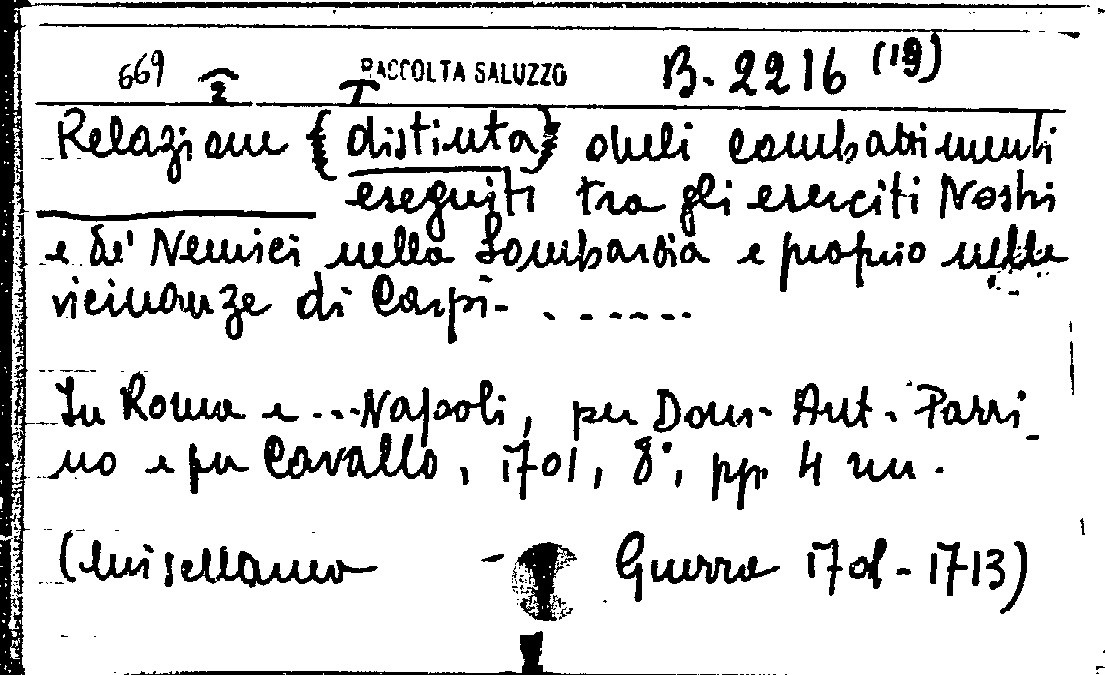 669 2 RACCOLTA SALUZZO B. 2216 (19)
Relazione {distinta} delli combattimenti
eseguiti tra gli eserciti Nostri
e de' Nemici nella Lombardia e proprio nelle
vicinanze di Carpi- . - - - - - -
In Roma e ... Napoli, per Dom. Ant. Parri_
no e per Cavallo, 1701, 8°, pp. 4 nn.
(Miscellanea - Guerra 1701-1713)